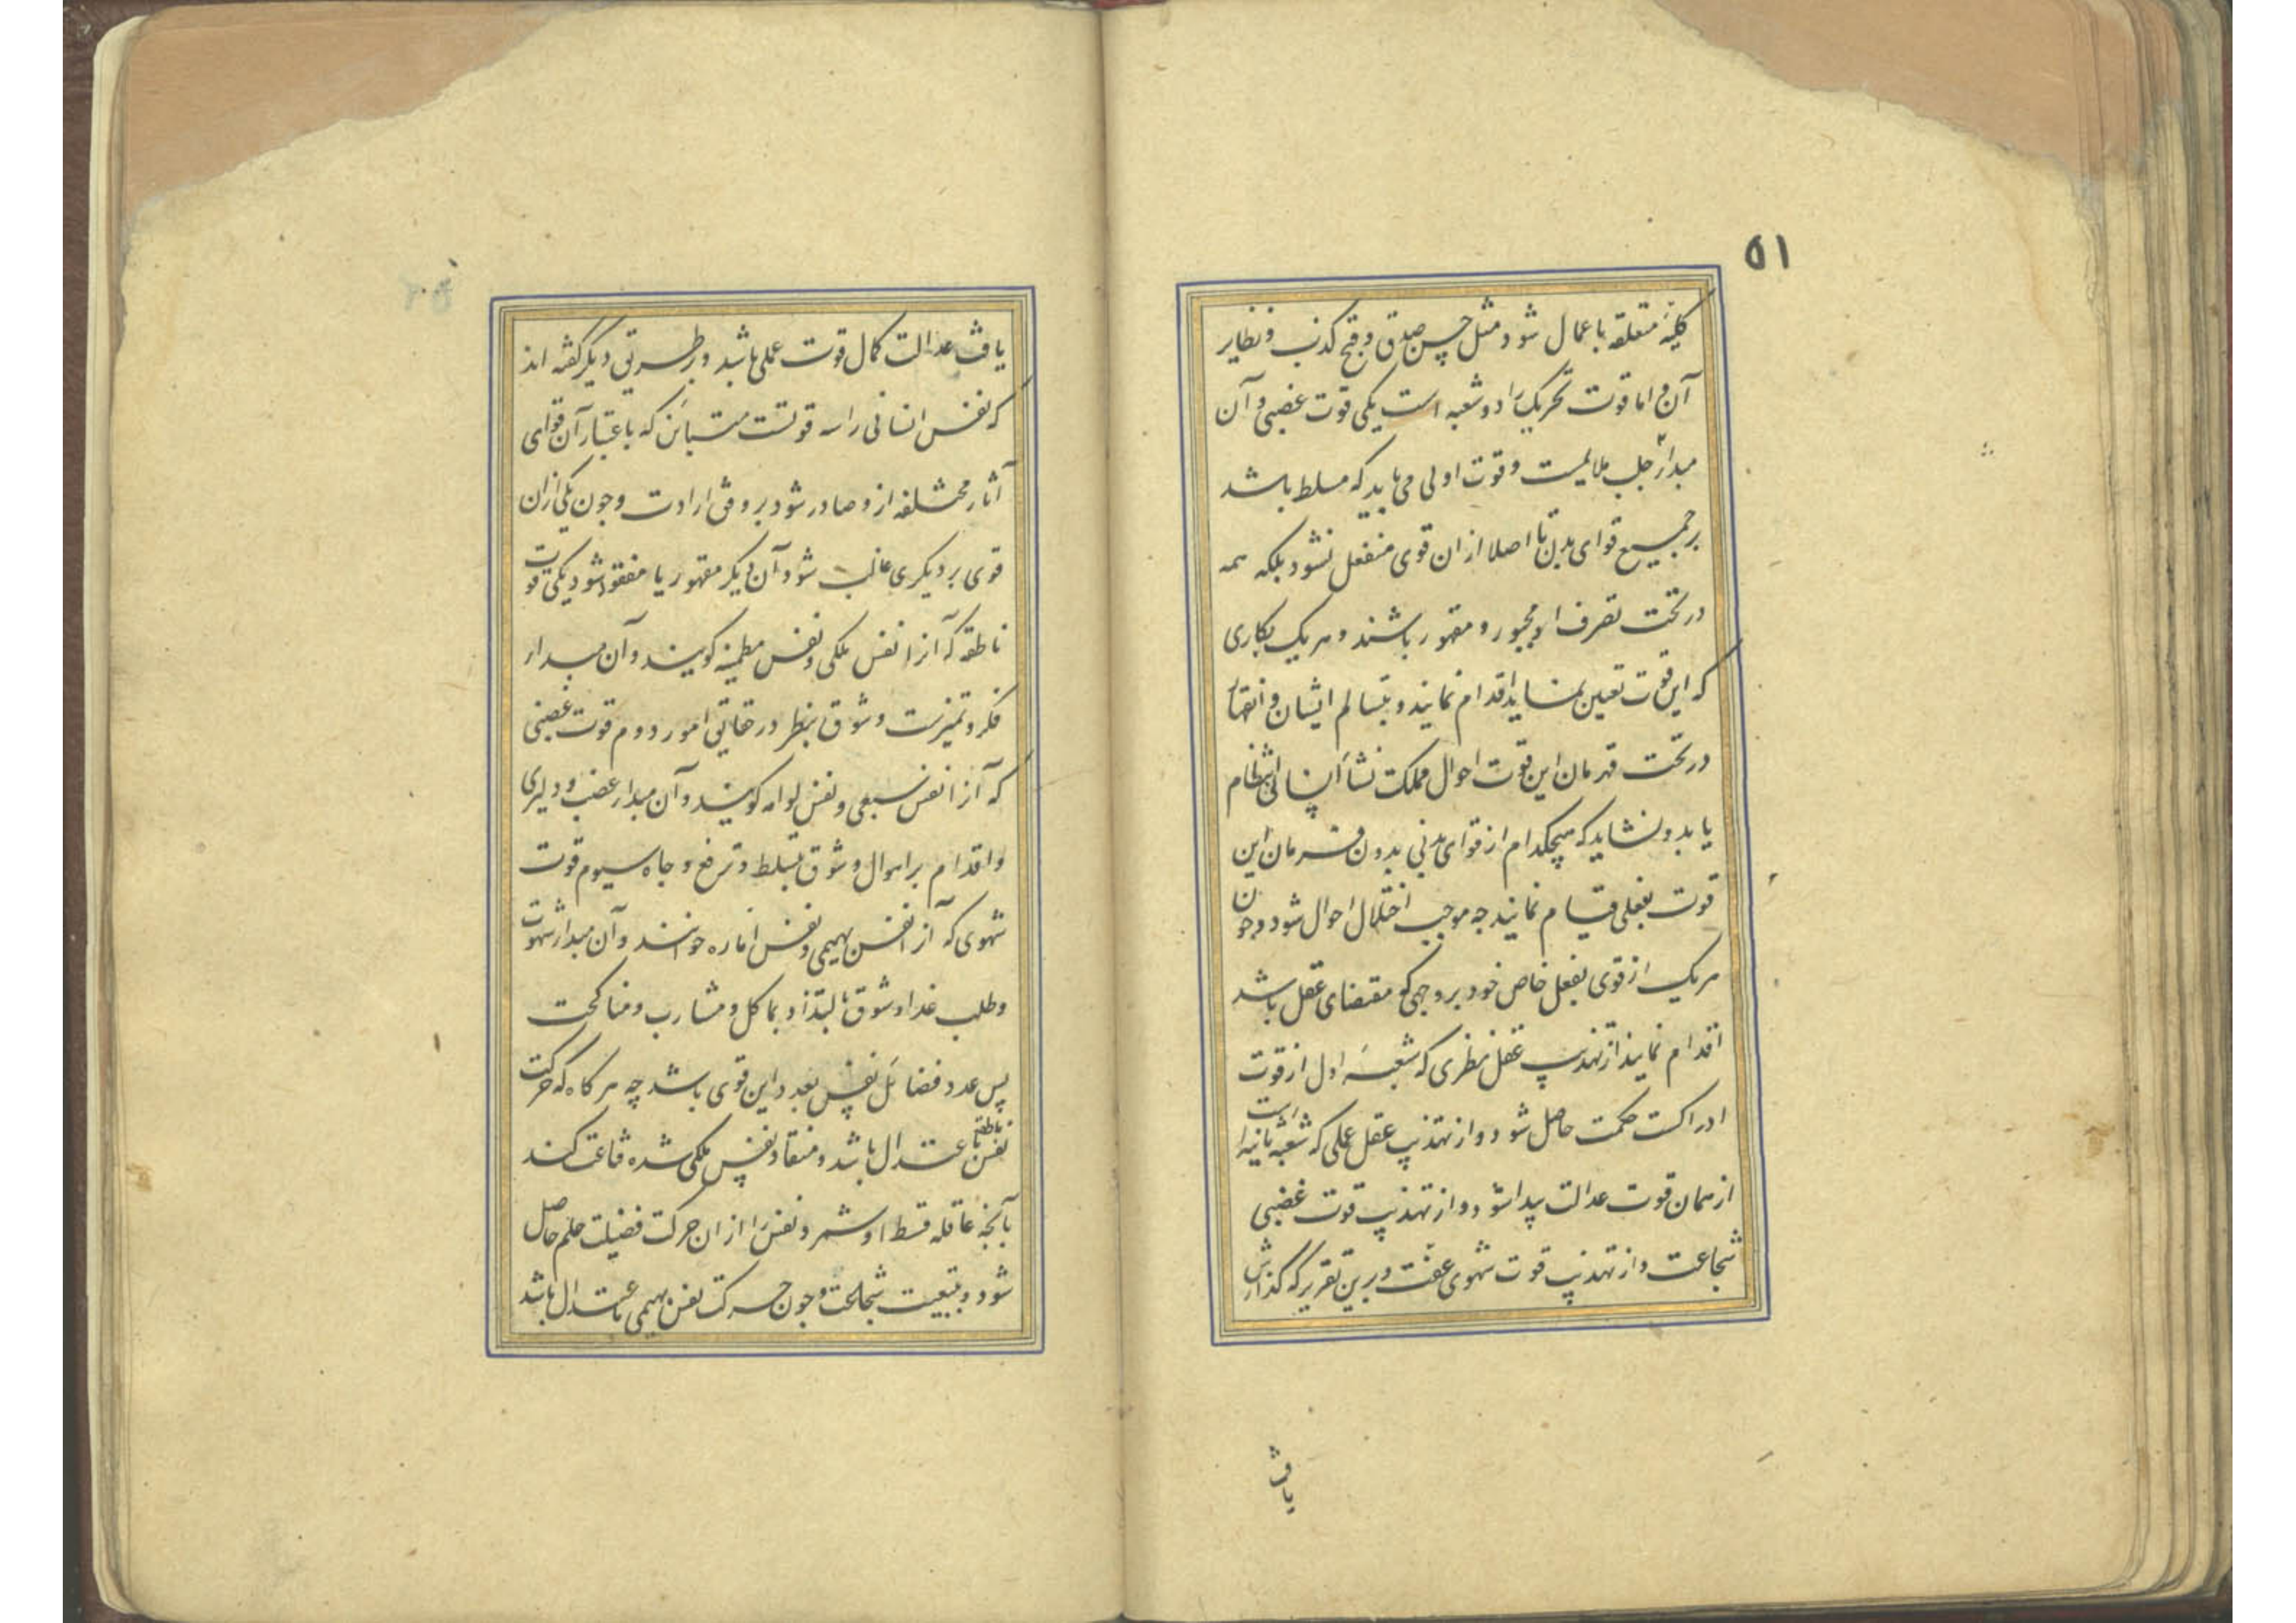 ۵۱
کلیه متعلقه باعمال شود مثل حسن صدق و قبح کذب و نظایر
آن و اما قوت تحریک را دو شعبه است یکی قوت غضبی و آن
مبدا جلب ملایمست و قوت اولی می باید که مسلط باشد
بر جمیع قوای بدن تا اصلا ازان قوی منفعل نشود بلکه همه
در تحت تصرف او مجبور و مقهور باشند و هر یک بکاری
که این قوت تعین نماید اقدام نمایند و بتسالم ایشان و انتهای
در تحت قهرمان این قوت احوال مملکت نشأ انسانی انتظام
یابد و نشاید که هیچکدام از قوای بدنی بدون فرمان این
قوت بفعلی قیام نمایند چه موجب اختلال احوال شود و چون
هر یک از قوی بفعل خاص خود بر وجهی کو مقتضای عقل باشد
اقدام نمایند از تهذیب عقل نظری که شعبه اول از قوت
ادراکست حکمت حاصل شود و از تهذیب عقل عملی که شعبه ثانیه است
از همان قوت عدالت پیدا شود و از تهذیب قوت غضبی
شجاعت و از تهذیب قوت شهوی عفت و برین تقریر که گذارش
یافت
یافت عدالت کمال قوت عملی باشد و بر طریق دیگر گفته اند
که نفس انسانی را سه قوتست متباین که باعتبار آن قوای
آثار مختلفه ازو صادر شود بر وفق ارادت و چون یکی ازان
قوی بر دیگری غالب شود آن دیگر مقهور یا مفقود شود یکی قوت
ناطقه که آنرا نفس ملکی و نفس مطمئنه گویند و آن مبدا
فکر و تمیزست و شوق بنظر در حقایق امور دوم قوت غضبی
که آنرا نفس سبعی و نفس لوامه گویند و آن مبدا غضب و دلیری
و اقدام بر اهوال و شوق تسلط و ترفع و جاه سیوم قوت
شهوی که آنرا نفس بهیمی و نفس اماره خوانند و آن مبدا شهوت
و طلب غدا و شوق بالتذاذ بماکل و مشارب و مناکحت
پس عدد فضائل نفس بعدد این قوی باشد چه هر گاه که حرکت
نفس ناطقه باعتدال باشد و منقاد نفس ملکی شده قناعت کند
بآنچه عاقله قسط او شمرد نفس را ازان حرکت فضیلت حلم حاصل
شود و بتبعیت شجاعت و چون حرکت نفس بهیمی باعتدال باشد